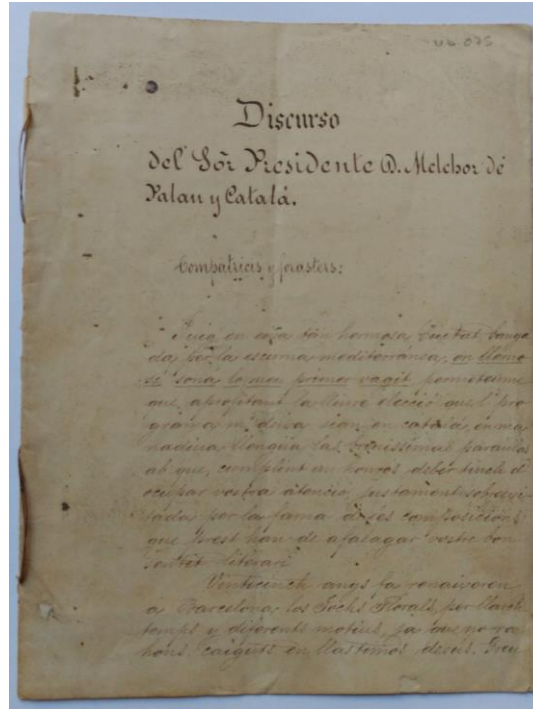 46-075
Discurso
del Sõr Presidente D. Melchor de
Palau y Catalá.
Compatricis y forasters:
Puig en esta tan hermosa Ciutat banya
da per la escuma mediterránea, en
se sona lo meu primer vagit, permeteume
que aprofitant la lliure elecció que l' pro
grama m' deixa sian en catalá, en ma
nadiua llengua las brevíssimas paraulas
ab que, cumplint un honrós deber tinch d'
ocupar vostra atenció, justament sobrexi
tada per la fama de las composicions
que prest han de afalagar vostre bon
sentit literari.
Venticinch anys fa renaixeren
a Barcelona los Jochs Florals, per llarch
temps y diferents motius, ja que no ra
hons, caiguts en llastimós desús. Greu